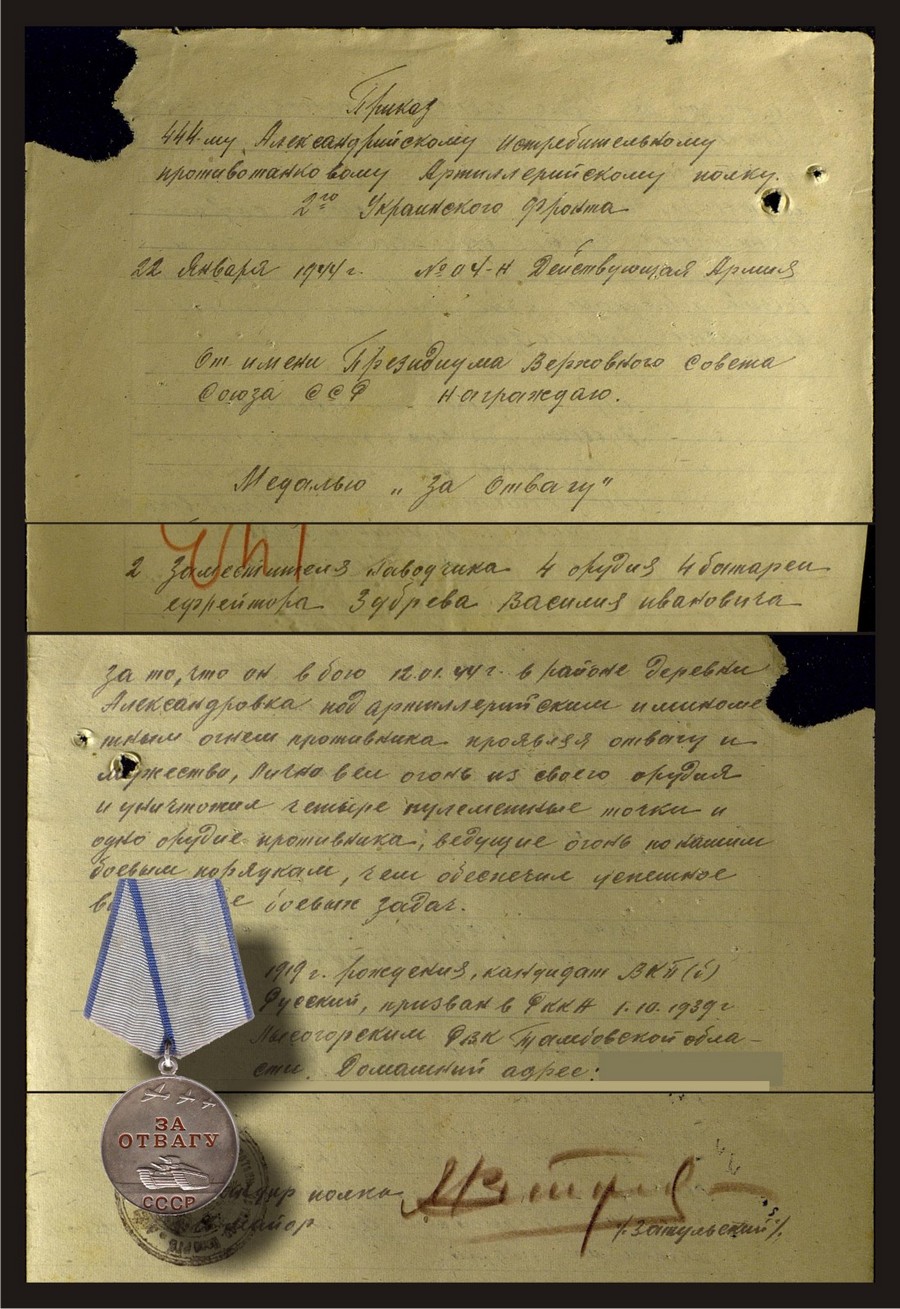 Приказ
444-му Александрийскому истребительному
противотанковому Артиллерийскому полку.
2го Украинского фронта
22 Января 1944 г. № 04-Н Действующая Армия
От имени Президиума Верховного совета
Союза ССР награждаю.
Медалью „За Отвагу"
2 Заместителя наводчика 4 орудия 4 батареи
ефрейтора Зубрева Василия ивановича
за то, что он в бою 12.01.44 г. в районе деревни
Александровка под артиллерийским и миноме
тным огнем противника проявляя отвагу и
мужество, лично вел огонь из своего орудия
и уничтожил четыре пулеметные точки и
одно орудие противника, ведущие огонь по нашим
боевым порядкам, чем обеспечил успешное
боевых задач.
1919 г. рождения, кандидат ВКП(б)
Русский, призван в РККА 1.10.1939 г
Лысогорским РВК Тамбовской обла-
сти. Домашний адрес:
ЗА
ОТВАГУ
СССР
полка
майор
/Затульский/.